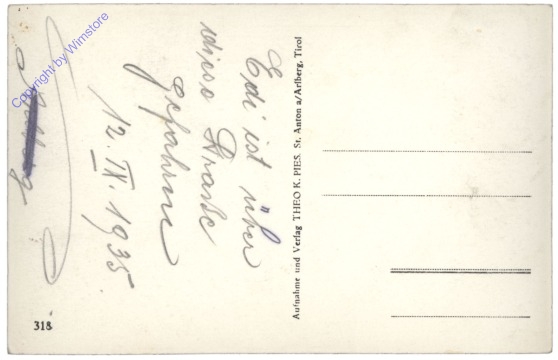 Edi ist über
diese Straße
gefahren
12. IX. 1935
Aufnahme und Verlag THEO K. PIES, St. Anton a/Arlberg, Tirol
318
Copyright by Wimstore